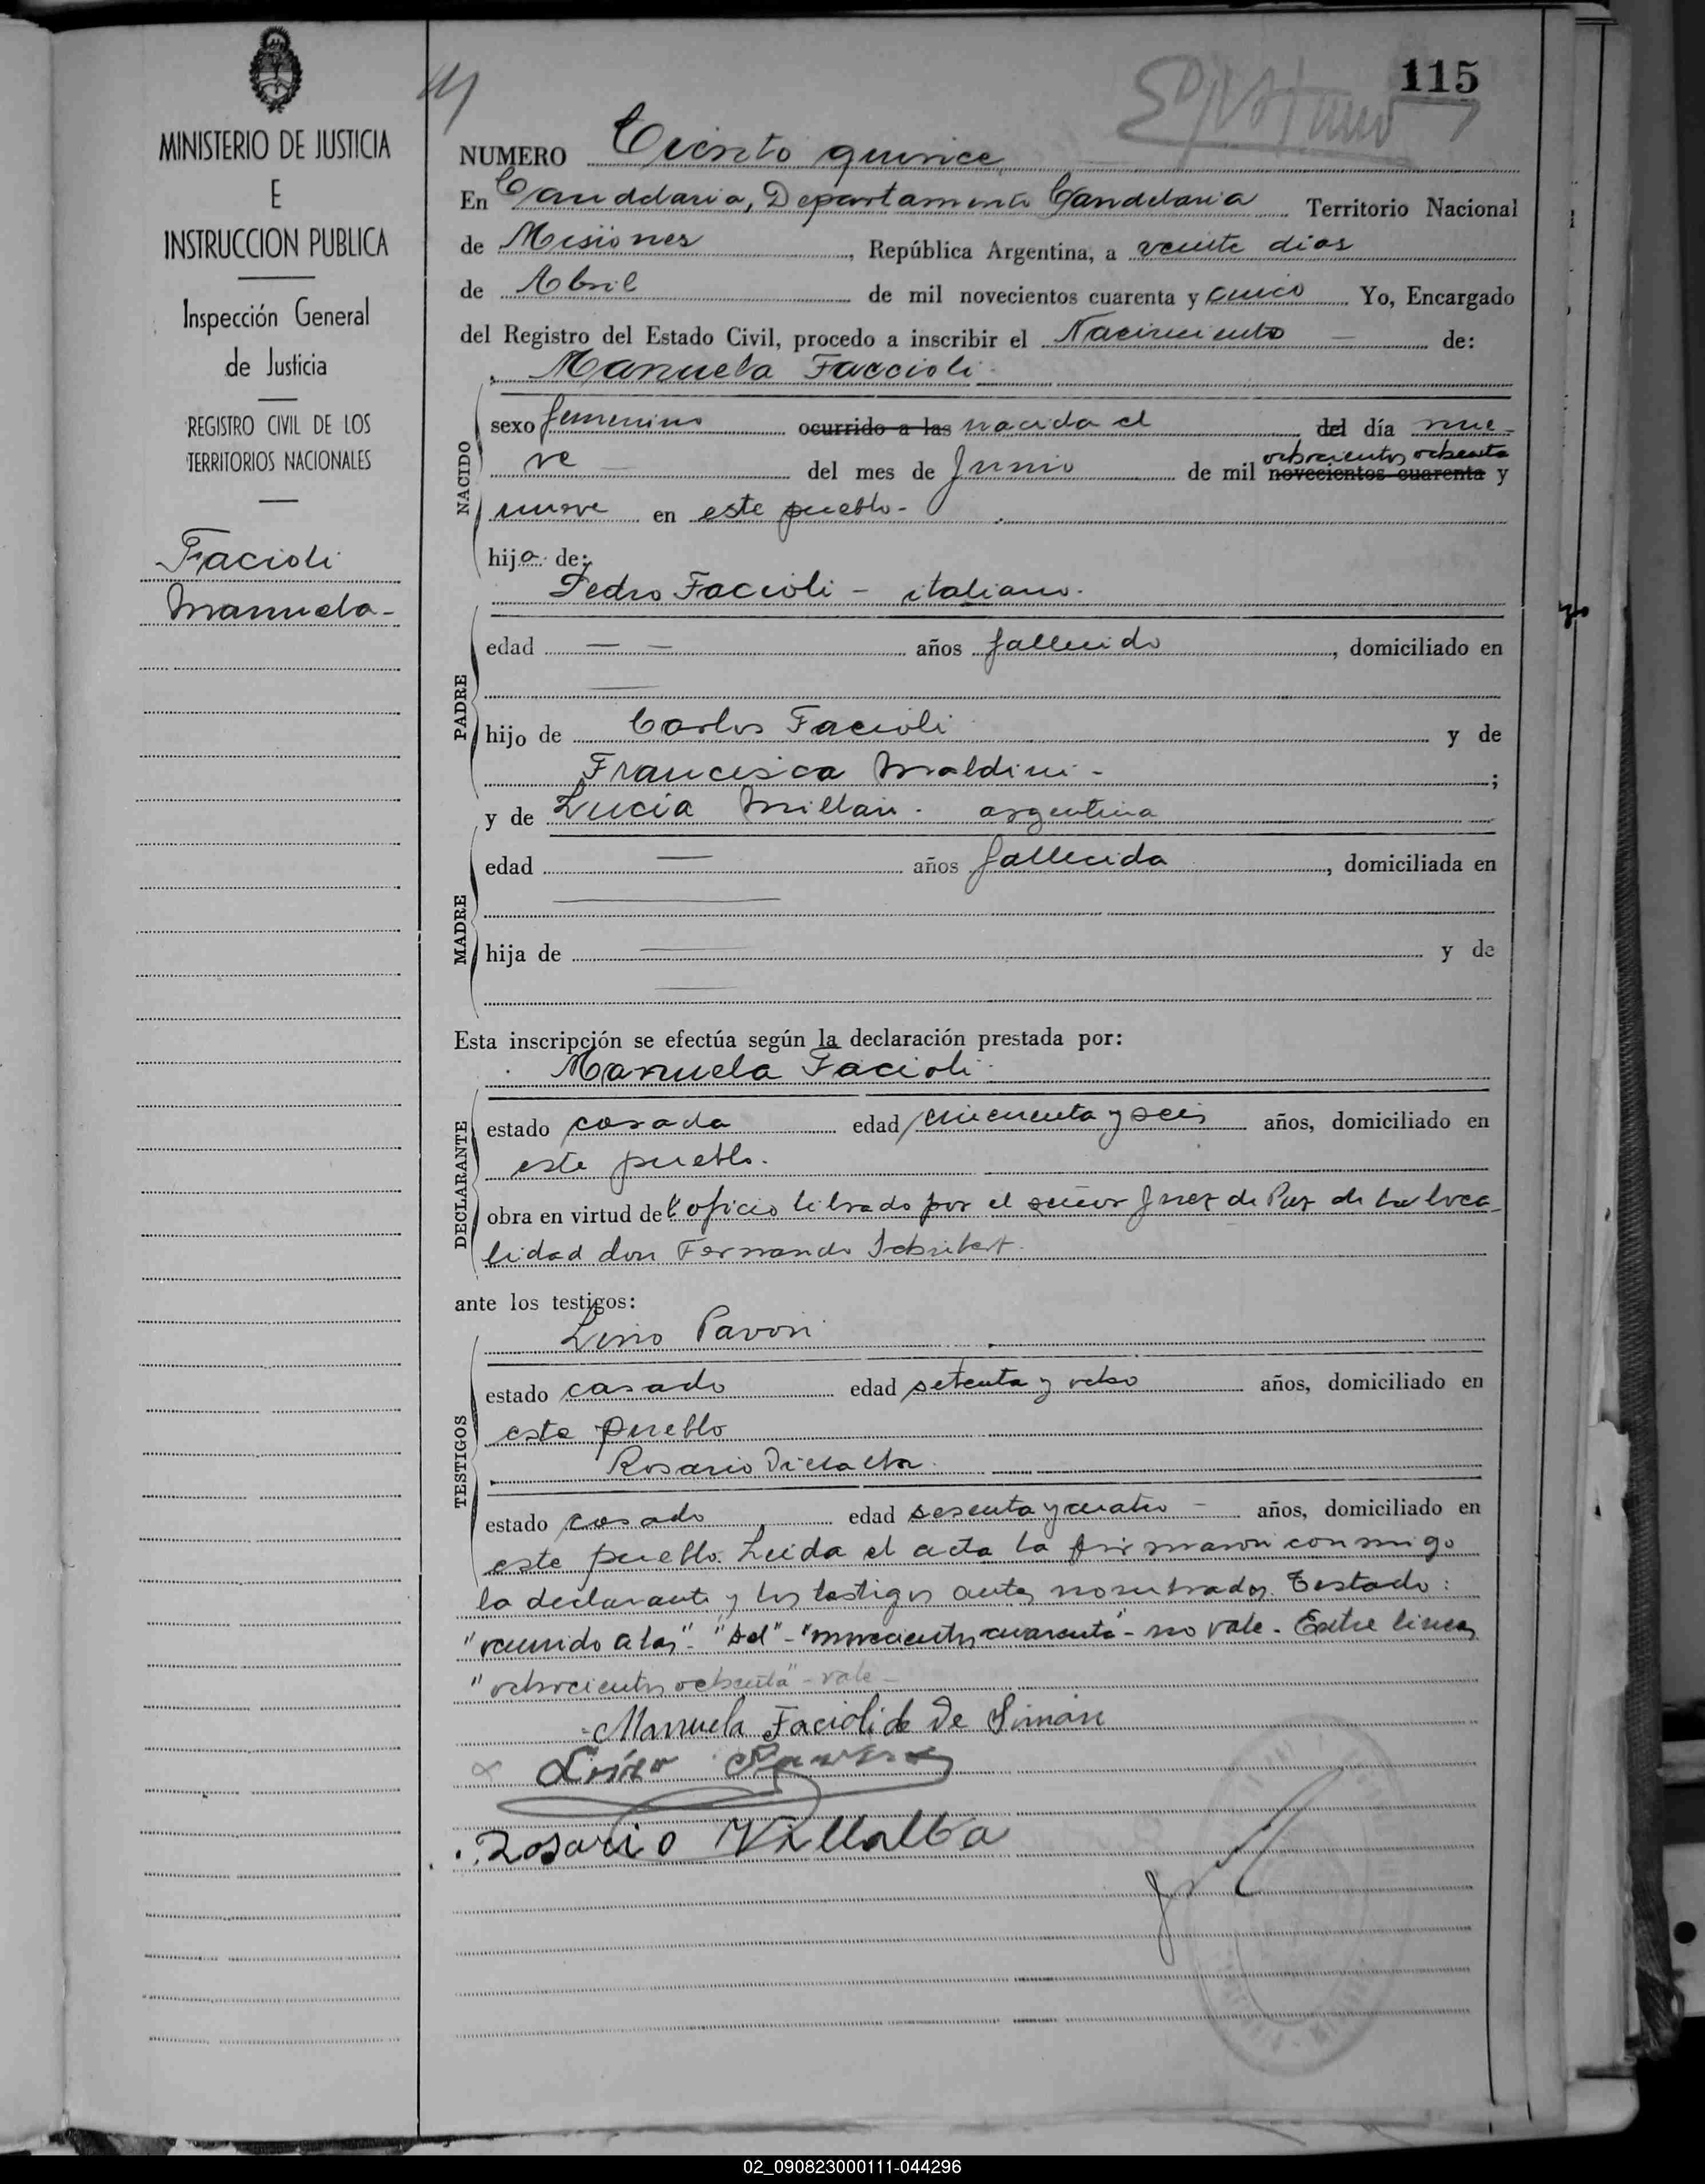 115
MINISTERIO DE JUSTICIA
E
INSTRUCCION PUBLICA
Inspección General
de Justicia
REGISTRO CIVIL DE LOS
TERRITORIOS NACIONALES
Facioli
Manuela-
NUMERO Ciento quince
En Candelaria, Departamento Candelaria Territorio Nacional
de Misiones, República Argentina, a veinte dias
de Abril de mil novecientos cuarenta y cinco Yo, Encargado
del Registro del Estado Civil, procedo a inscribir el Nacimiento — de:
Manuela Faccioli
NACIDO
sexo femenino ocurrido a las nacida el del día nue-
ochocientos ochenta
ve del mes de Junio de mil novecientos cuarenta y
nueve en este pueblo-
hija de:
Pedro Facioli - italiano.
PADRE
edad — — años fallecido, domiciliado en
hijo de Carlos Facioli y de
Francisca Maldini - ;
y de Lucia Millan - argentina
MADRE
edad — años fallecida, domiciliada en
hija de — y de
Esta inscripción se efectúa según la declaración prestada por:
Manuela Facioli
DECLARANTE
estado casada edad cincuenta y seis años, domiciliado en
este pueblo.
obra en virtud del oficio librado por el señor Juez de Paz de la loca-
lidad don Fernando Schubert.
ante los testigos:
Lino Pavon
TESTIGOS
estado casado edad setenta y ocho años, domiciliado en
este pueblo
Rosario
estado casado edad sesenta y cuatro - años, domiciliado en
este pueblo. Leida el acta la firmaron conmigo
la declarante y los testigos antes nombrados. Testado:
"ocurrido a las" - "del" - "novecientos cuarenta" - no vale - Entre lineas
"ochocientos ochenta" - vale -
Manuela Facioli de De Simón
Lino Pavon
Rosario Villalba
02_090823000111-044296